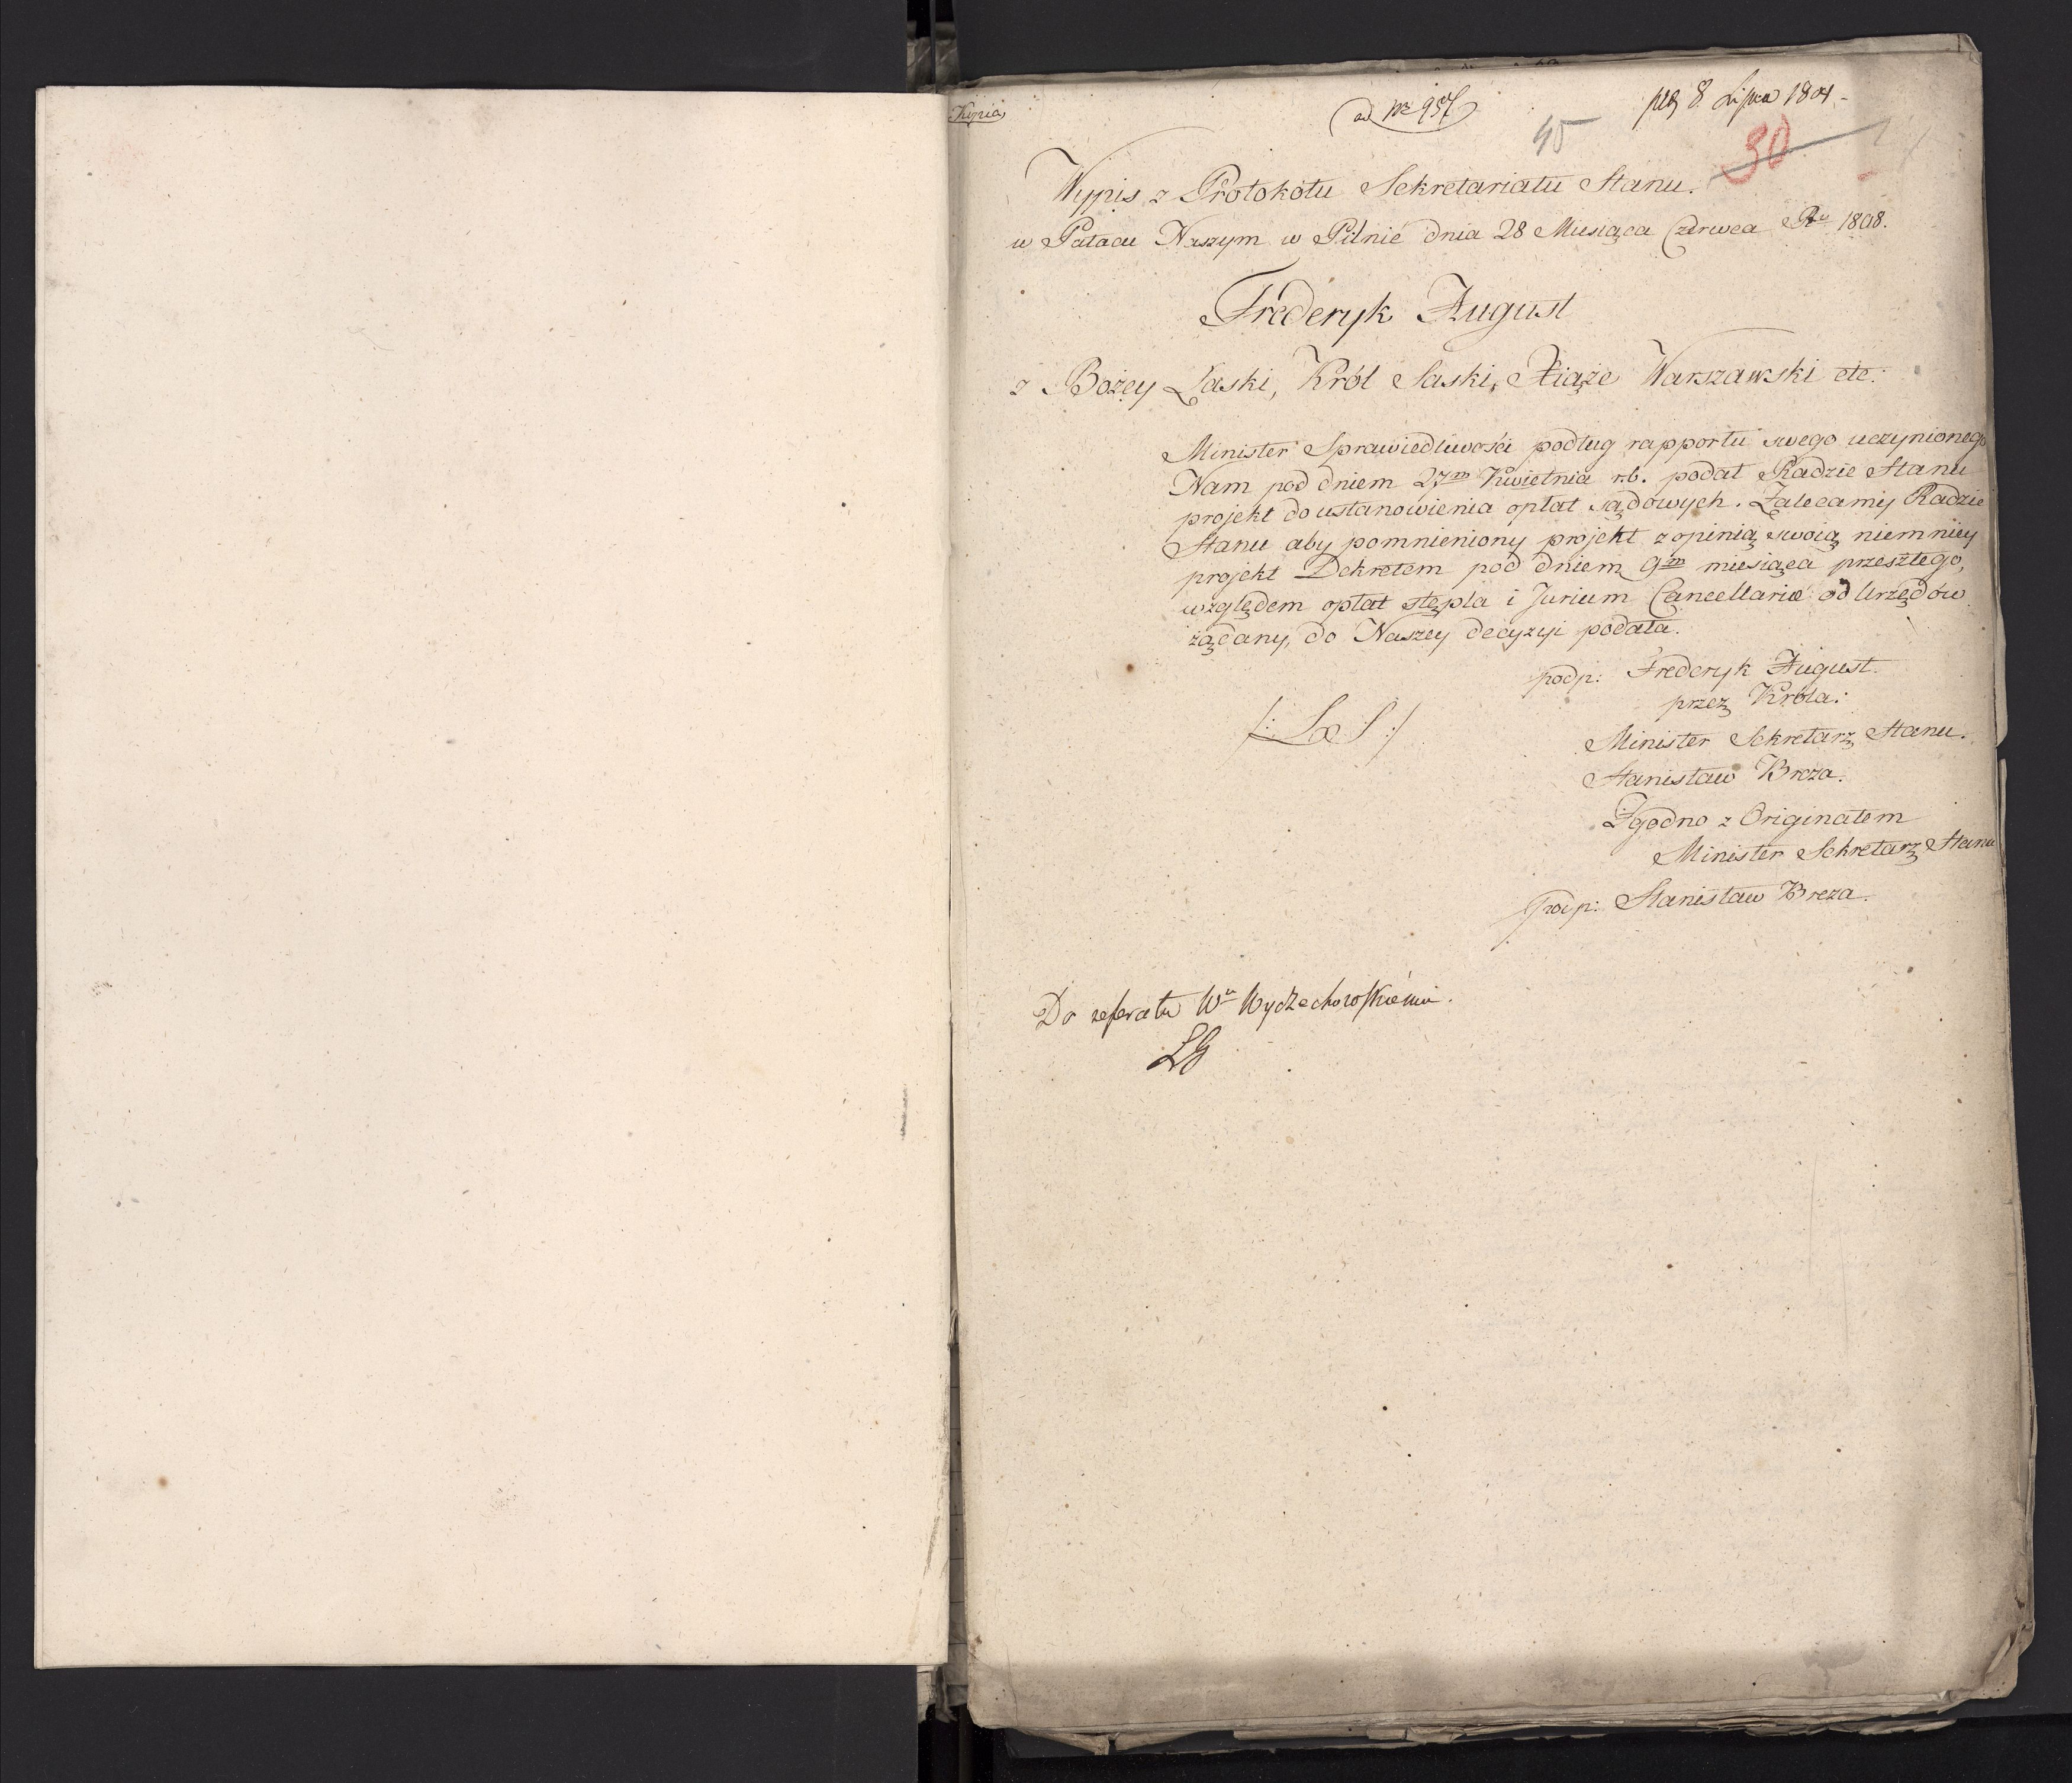 Kopia
ad Nr 957
8 Lipca 180
45
30
Wypis z Protokołu Sekretariatu Stanu.
w Pałacu Naszym w Pilnié dnia 28 Miesiąca Czerwca Ru 1808.
Fréderyk August
z Bożey Łaski, Król Saski, Xiąże Warszawski etc:
Minister Sprawiedliwości podług rapportu swego uczynionego
Nam pod dniem 27m Kwietnia r.b. podał Radzie Stanu
projekt do ustanowienia opłat sądowych. Zalecamy Radzie
Stanu aby pomnieniony projekt z opinią swoią niemniey
projekt Dekretem pod dniem 9m miesiąca przeszłego,
względem opłat stępla i Jurium Cancellariæ od Urzędów
żądany, do Naszey decyzyi podała.
podp: Frederyk August.
przez Króla:
/: L S :/
Minister Sekretarz Stanu.
Stanisław Breza.
Zgodno z Originałem
Minister Sekretarz Stanu
podp: Stanisław Breza.
Do referatu Wu Wyczechowskiemu.